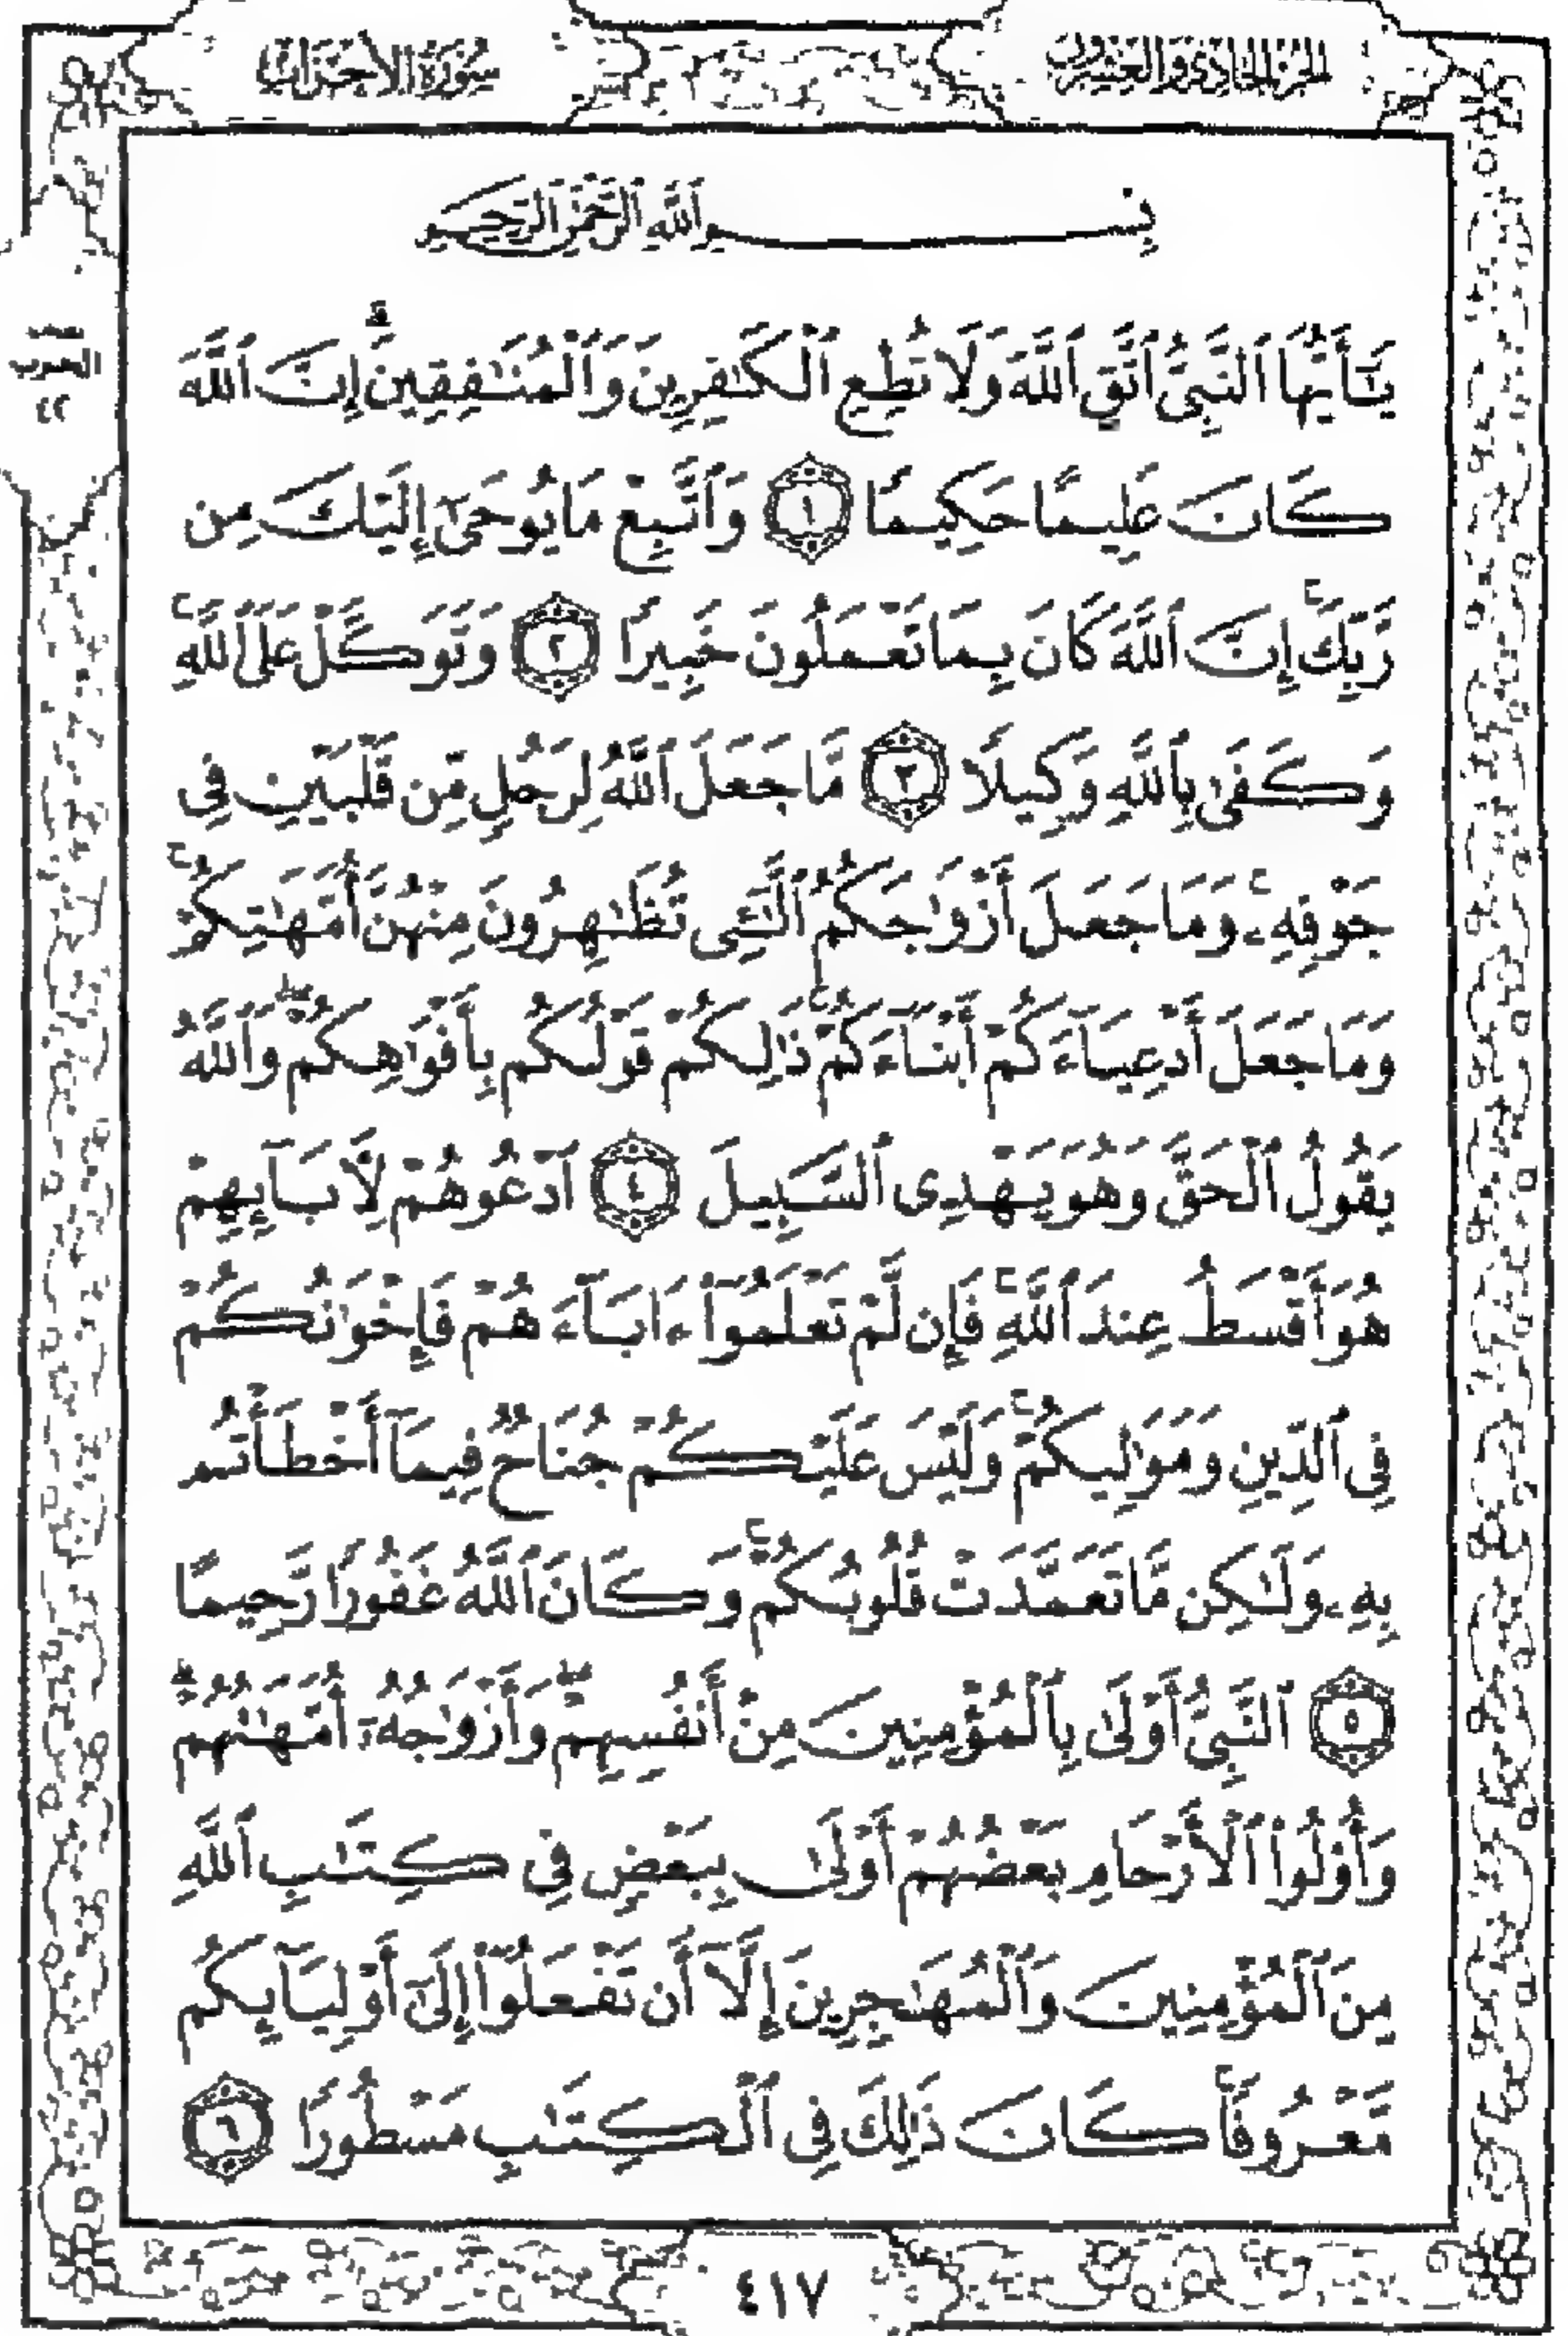 الجزء الحادي والعشرون
سورة الأحزاب
بِسْمِ ٱللَّهِ ٱلرَّحْمَٰنِ ٱلرَّحِيمِ
يَٰٓأَيُّهَا ٱلنَّبِىُّ ٱتَّقِ ٱللَّهَ وَلَا تُطِعِ ٱلْكَٰفِرِينَ وَٱلْمُنَٰفِقِينَ ۗ إِنَّ ٱللَّهَ
كَانَ عَلِيمًا حَكِيمًا ١ وَٱتَّبِعْ مَا يُوحَىٰٓ إِلَيْكَ مِن
رَّبِّكَ ۚ إِنَّ ٱللَّهَ كَانَ بِمَا تَعْمَلُونَ خَبِيرًا ٢ وَتَوَكَّلْ عَلَى ٱللَّهِ ۚ
وَكَفَىٰ بِٱللَّهِ وَكِيلًا ٣ مَّا جَعَلَ ٱللَّهُ لِرَجُلٍ مِّن قَلْبَيْنِ فِى
جَوْفِهِۦ ۚ وَمَا جَعَلَ أَزْوَٰجَكُمُ ٱلَّٰٓـِٔى تُظَٰهِرُونَ مِنْهُنَّ أُمَّهَٰتِكُمْ ۚ
وَمَا جَعَلَ أَدْعِيَآءَكُمْ أَبْنَآءَكُمْ ۚ ذَٰلِكُمْ قَوْلُكُم بِأَفْوَٰهِكُمْ ۖ وَٱللَّهُ
يَقُولُ ٱلْحَقَّ وَهُوَ يَهْدِى ٱلسَّبِيلَ ٤ ٱدْعُوهُمْ لِأَبَآئِهِمْ
هُوَ أَقْسَطُ عِندَ ٱللَّهِ ۚ فَإِن لَّمْ تَعْلَمُوٓا۟ ءَابَآءَهُمْ فَإِخْوَٰنُكُمْ
فِى ٱلدِّينِ وَمَوَٰلِيكُمْ ۚ وَلَيْسَ عَلَيْكُمْ جُنَاحٌ فِيمَآ أَخْطَأْتُم
بِهِۦ وَلَٰكِن مَّا تَعَمَّدَتْ قُلُوبُكُمْ ۚ وَكَانَ ٱللَّهُ غَفُورًا رَّحِيمًا
٥ ٱلنَّبِىُّ أَوْلَىٰ بِٱلْمُؤْمِنِينَ مِنْ أَنفُسِهِمْ ۖ وَأَزْوَٰجُهُۥٓ أُمَّهَٰتُهُمْ ۗ
وَأُو۟لُوا۟ ٱلْأَرْحَامِ بَعْضُهُمْ أَوْلَىٰ بِبَعْضٍ فِى كِتَٰبِ ٱللَّهِ
مِنَ ٱلْمُؤْمِنِينَ وَٱلْمُهَٰجِرِينَ إِلَّآ أَن تَفْعَلُوٓا۟ إِلَىٰٓ أَوْلِيَآئِكُم
مَّعْرُوفًا ۚ كَانَ ذَٰلِكَ فِى ٱلْكِتَٰبِ مَسْطُورًا ٦
الحزب
٤٢
٤١٧